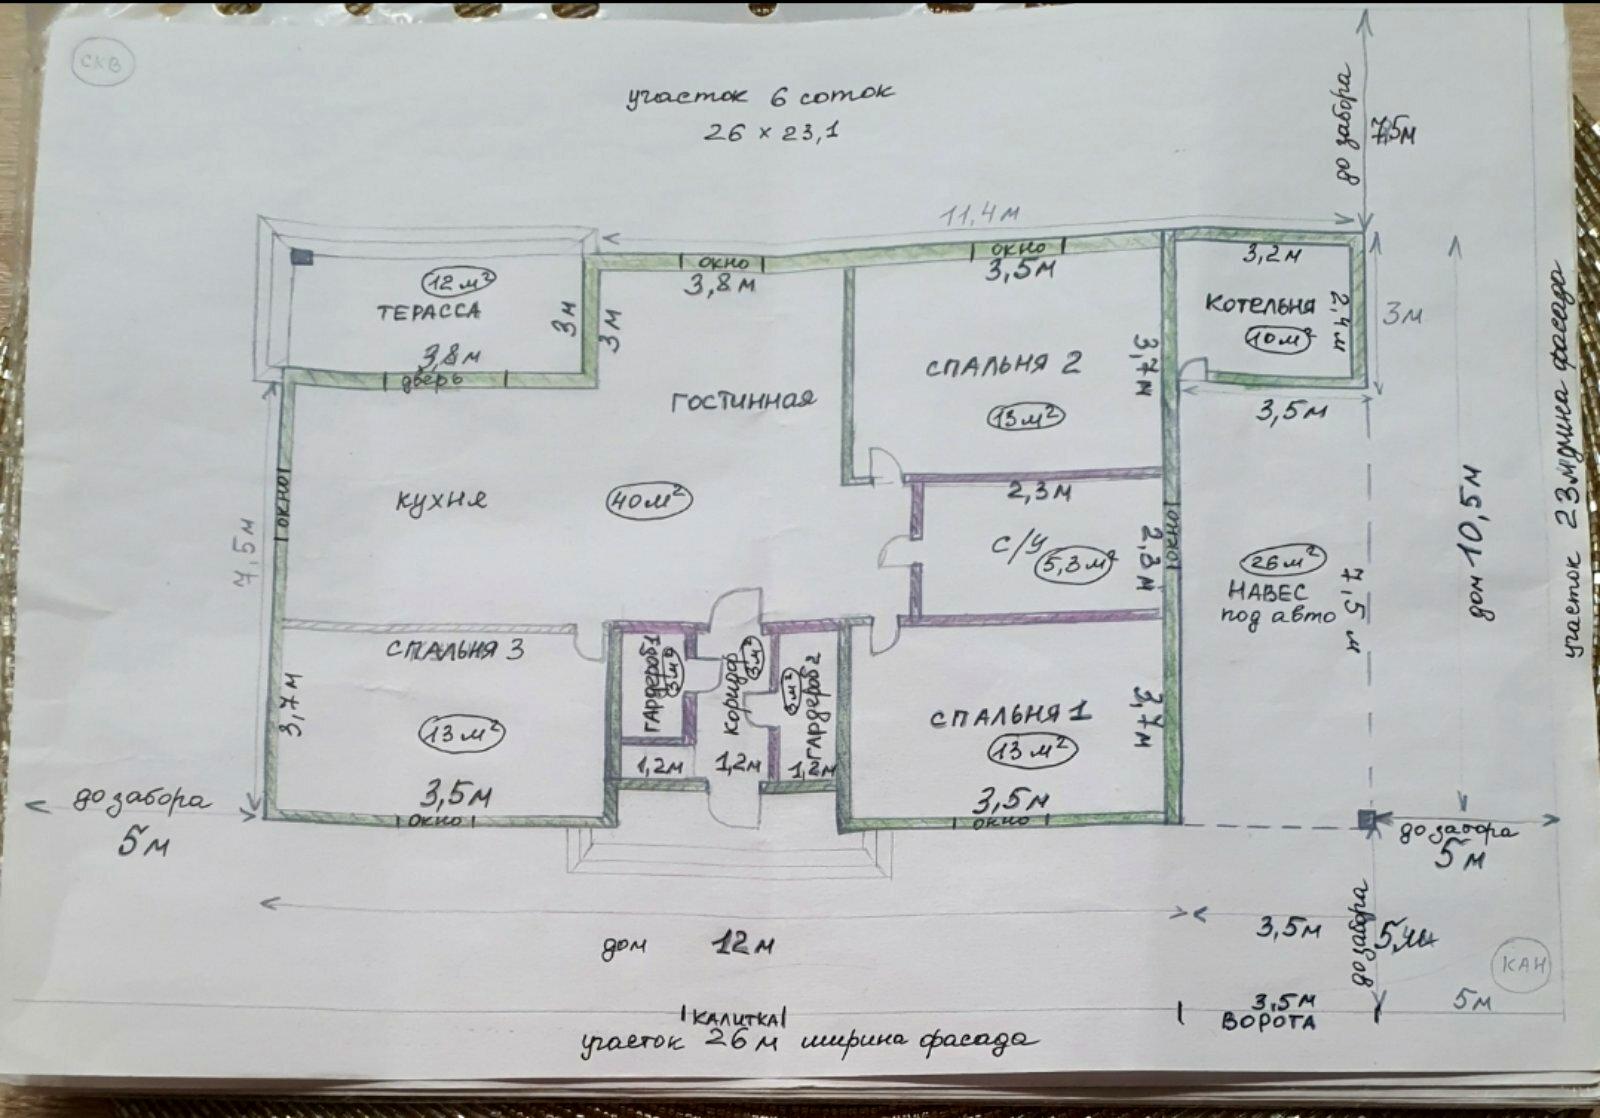 СКВ
участок 6 соток
26 × 23,1
до забора
7,5м
11,4м
окно
3,8м
окно
3,5м
3,2м
котельня
2,4м
10м²
3м
12м²
терасса
3м
3м
3,8м
дверь
гостинная
спальня 2
3,7м
13м²
3,5м
участок 23м длина фасада
дом 10,5м
окно
7,5м
кухня
40м²
2,3м
с/у
5,3м²
2,3м
окно
26м²
навес
под авто
7,5м
спальня 3
3,7м
13м²
3,5м
окно
гардероб 1
3м²
1,2м
коридор
3м²
1,2м
3м²
гардероб 2
1,2м
спальня 1
3,7м
13м²
3,5м
окно
до забора
5м
до забора
5м
дом 12м
3,5м
до забора
КАН
калитка
3,5м
ворота
5м
участок 26м ширина фасада